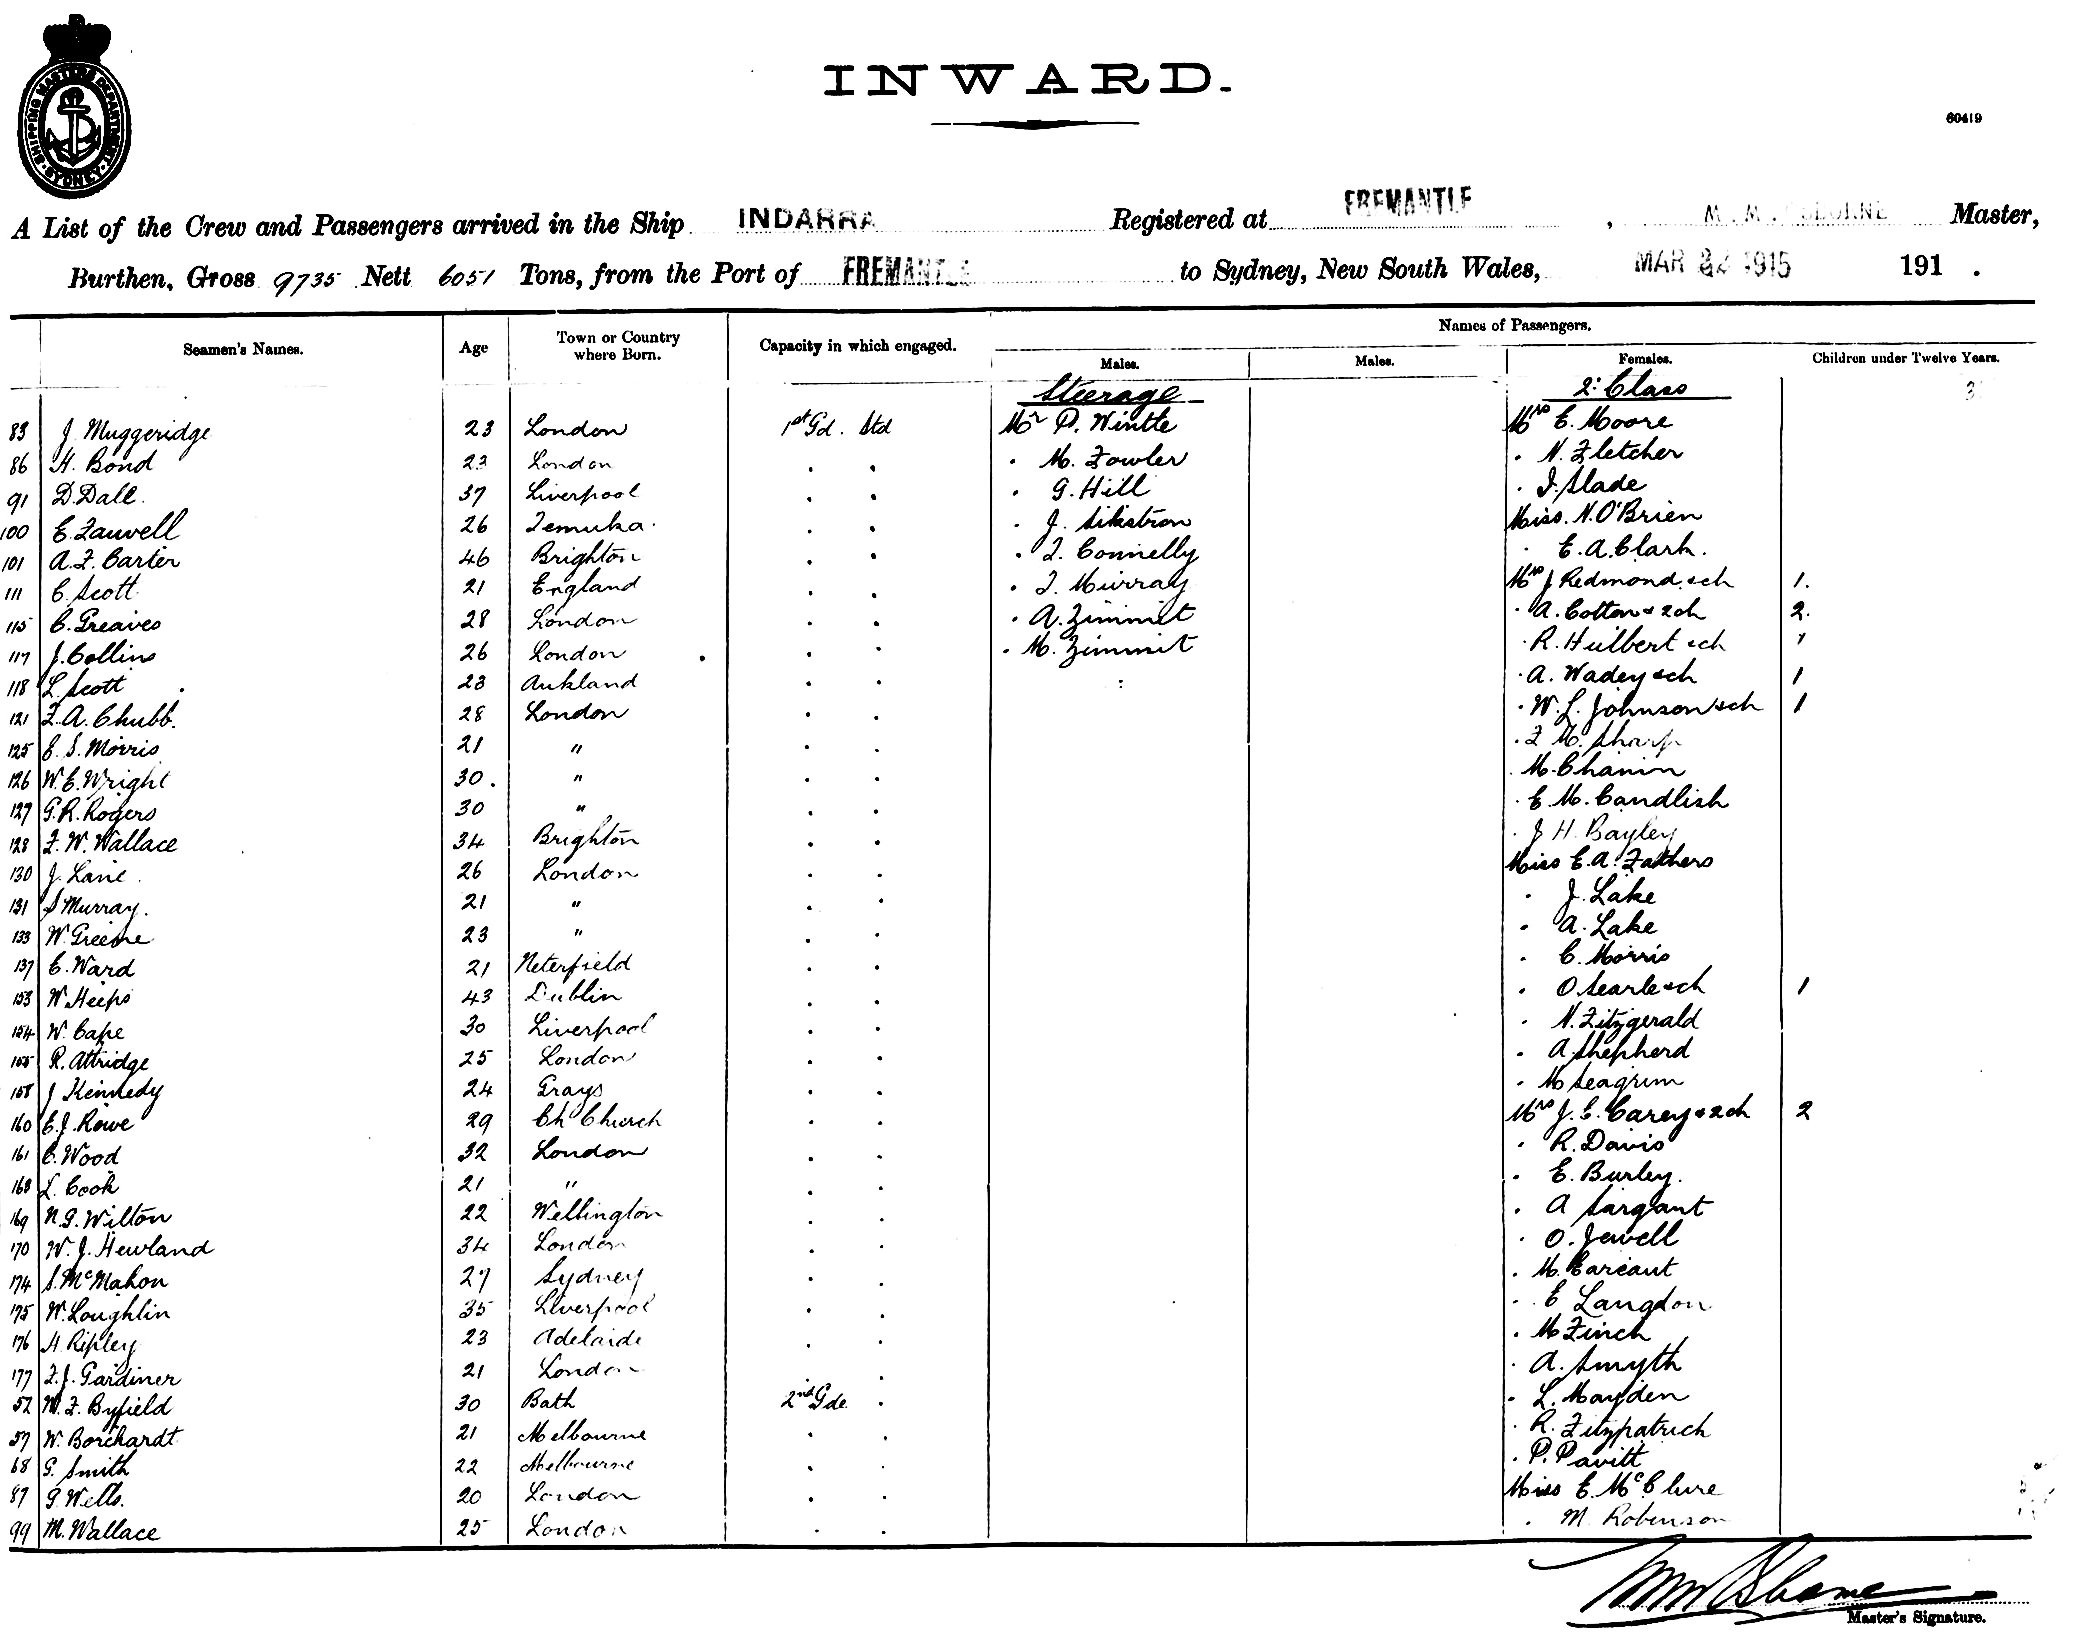 SHIPPING MASTERS DEPARTMENT · SYDNEY ·
INWARD.
60419
A List of the Crew and Passengers arrived in the Ship INDARRA Registered at FREMANTLE, Master,
Burthen, Gross 9735 Nett 6051 Tons, from the Port of FREMANTLE to Sydney, New South Wales, MAR 1915 191 .
Seamen's Names. Age Town or Country where Born. Capacity in which engaged. Names of Passengers.
Males. Males. Females. Children under Twelve Years.
Steerage 2: Class
83 J. Muggeridge 23 London 1st Gd. Std Mr P. Wintle Mrs E. Moore
86 H. Bond 23 London . . . M. Fowler . N. Fletcher
91 D. Dall. 37 Liverpool . . . G. Hill . I. Slade
100 E. Fauvell 26 Temuka . . . J. Sikstron Miss. N. O'Brien
101 A. F. Carter 46 Brighton . . . T. Connelly . E. A. Clark.
111 C. Scott 21 England . . . T. Murray Mrs J Redmond & ch 1.
115 C. Greaves 28 London . . . A. Zimmit . A. Cotton & 2 ch 2.
117 J. Collins 26 London . . . M. Zimmit . R. Hulbert & ch 1
118 L. Scott 23 Aukland . . . A. Wadey & ch 1
121 F. A. Chubb. 28 London . . . W. L. Johnson & ch 1
125 E. S. Morris 21 " . . . F M. Sharp
126 W. E. Wright 30. " . . . M. Chanin
127 G. R. Rogers 30 " . . . E M. Candlish
128 F. W. Wallace 34 Brighton . . . J H. Bayley
130 J. Lane. 26 London . . Miss E. A. Fathers
131 S Murray. 21 " . . . J. Lake
133 W. Greene 23 " . . . A. Lake
137 E. Ward 21 Neterfield . . . C. Morris
153 W. Heeps 43 Dublin . . . O Searle & ch 1
154 W. Cape 30 Liverpool . . . N. Fitzgerald
155 R. Attridge 25 London . . . A Shepherd
158 J Kennedy 24 Grays . . . M Seagrim
160 E. J. Rowe 29 Ch Church . . Mrs J. E. Carey & 2 ch 2
161 C. Wood 32 London . . . R. Davis
168 L. Cook 21 " . . . E. Burley.
169 N. G. Wilton 22 Wellington . . . A Sargant
170 W. J. Hewland 34 London . . . O. Jewell
174 S. McMahon 27 Sydney . . . M.
175 W. Loughlin 35 Liverpool . . . E Langdon
176 H. Ripley 23 Adelaide . . . M Finch
177 F. J. Gardiner 21 London . . . A. Smyth
52 W. F. Byfield 30 Bath 2nd Gde . . L. Hayden
57 W. Borchardt 21 Melbourne . . . R. Fitzpatrick
68 G. Smith 22 Melbourne . . . P. Pavitt
87 G. Wells. 20 London . . Miss E. McClure
99 M. Wallace 25 London . . . M. Robinson
Master's Signature.